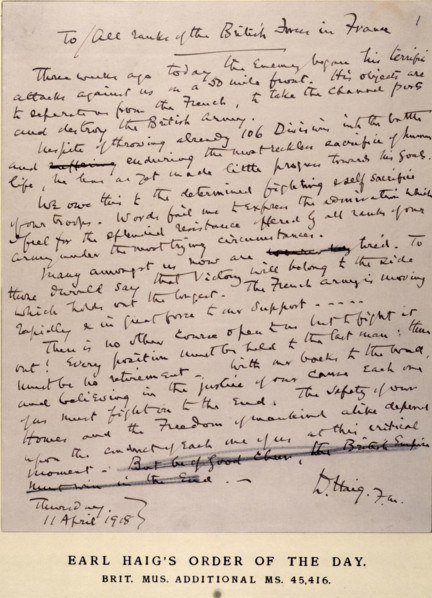 1
To / All ranks of the British Forces in France
Three weeks ago today the Enemy began his terrific
attacks against us on a 50 mile front. His objects are
to separate us from the French, to take the Channel ports
and destroy the British Army.
In spite of throwing already 106 Divisions into the battle
and enduring the most reckless sacrifice of human
life, he has as yet made little progress towards his Goals.
We owe this to the determined fighting & self sacrifice
of our troops. Words fail me to Express the admiration which
I feel for the splendid resistance offered by all ranks of our
Army under the most trying circumstances.
Many amongst us now are tired. To
those I would say that Victory will belong to the side
which holds out the longest. The French Army is moving
rapidly & in great force to our Support - - - - -
There is no other Course open to us but to fight it
out! Every position must be held to the last man: there
must be no retirement. With our backs to the wall,
and believing in the justice of our Cause Each one
of us must fight on to the End. The Safety of our
Homes and the Freedom of mankind alike depend
upon the conduct of Each one of us at this critical
moment. - But be of Good Cheer, the British Empire
must win in the End. -
D. Haig. F.M.
Thursday
11 April 1918
EARL HAIG'S ORDER OF THE DAY.
BRIT. MUS. ADDITIONAL MS. 45,416.